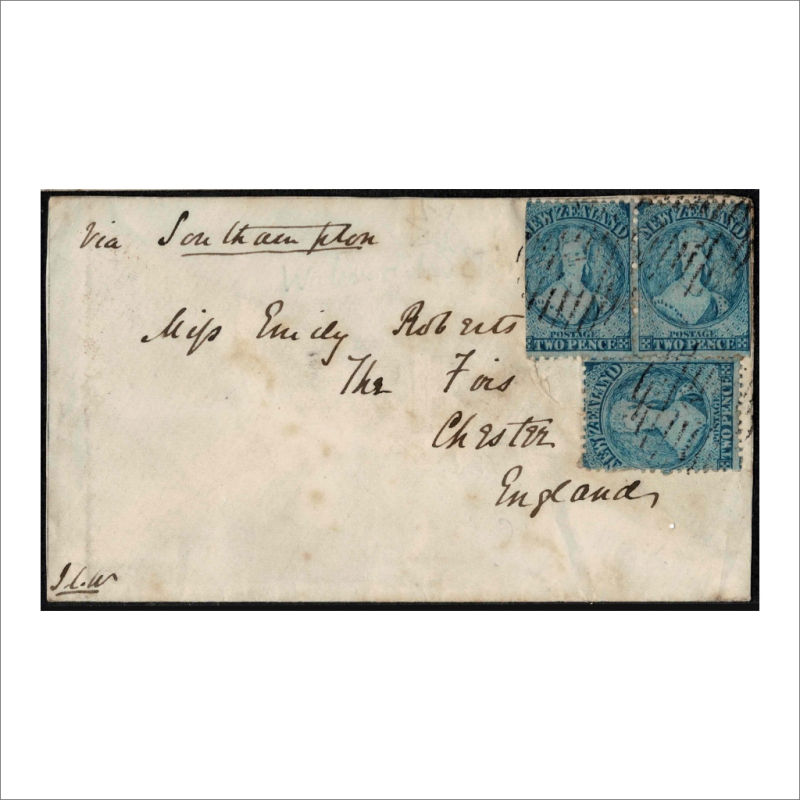 Via Southampton
NEW ZEALAND
POSTAGE
TWO PENCE
NEW ZEALAND
POSTAGE
TWO PENCE
Miss Emily Roberts
The Firs
Chester
England
NEW ZEALAND
POSTAGE
TWO PENCE